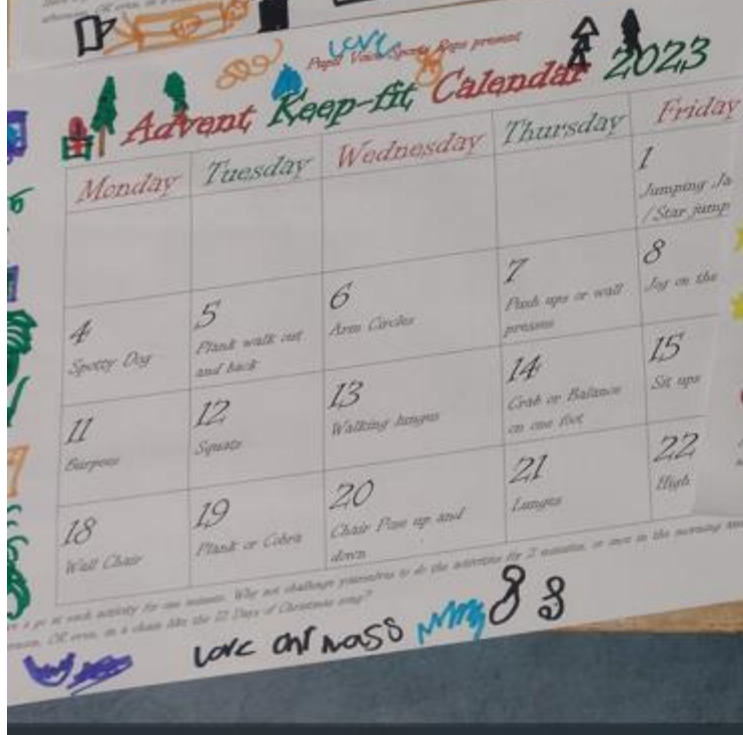 LOVE
Pupil Voice Sports Reps present
Advent Keep-fit Calendar 2023
Monday Tuesday Wednesday Thursday Friday
1
Jumping Ja
/ Star jump
4
Spotty Dog
5
Plank walk out
and back
6
Arm Circles
7
Push ups or wall
presses
8
Jog on the
11
Burpees
12
Squats
13
Walking lunges
14
Crab or Balance
on one foot
15
Sit ups
18
Wall Chair
19
Plank or Cobra
20
Chair Pose up and
down
21
Lunges
22
High
a go at each activity for one minute. Why not challenge yourselves to do the activities for 2 minutes, or once in the morning
OR even, in a chain like the 12 Days of Christmas song?
8 8